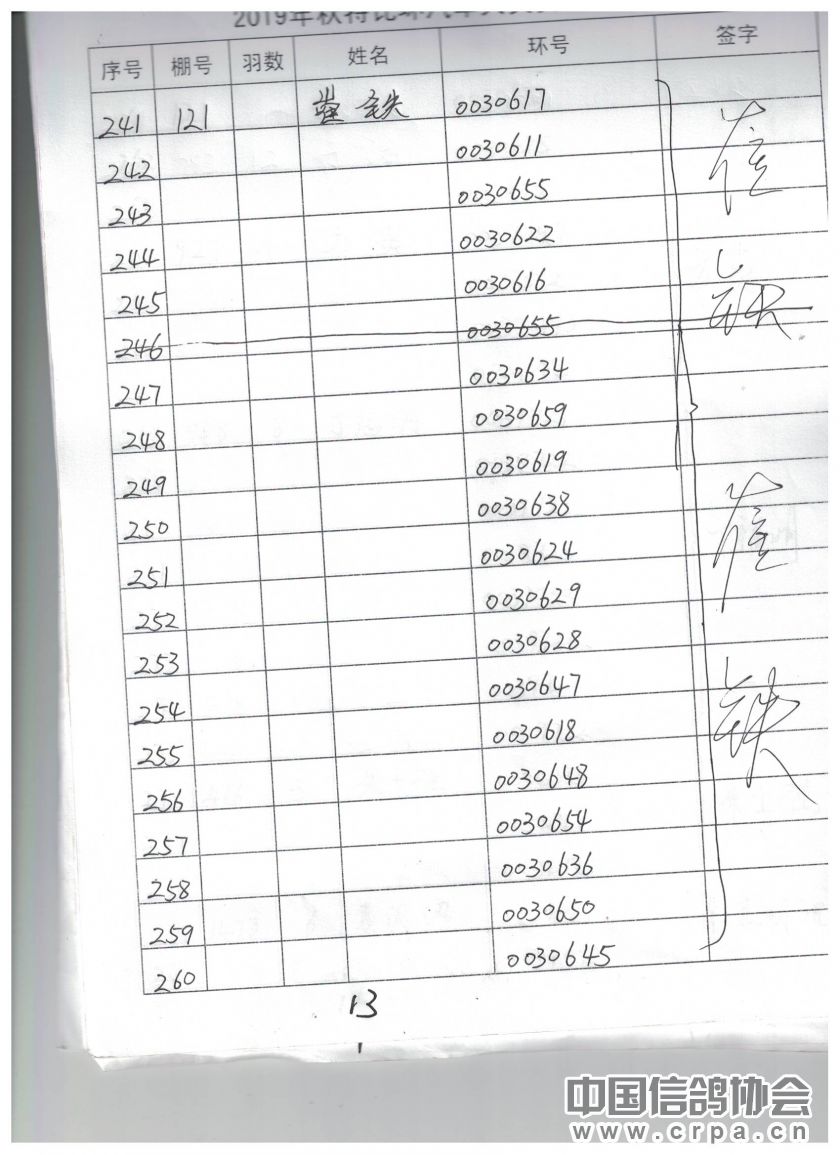 2019年秋特比环汽车大奖
序号 棚号 羽数 姓名 环号 签字
241 121 铁 0030617
242 0030611
243 0030655
244 0030622
245 0030616
246 0030655
247 0030634
248 0030659
249 0030619
250 0030638
251 0030624
252 0030629
253 0030628
254 0030647
255 0030618
256 0030648
257 0030654
258 0030636
259 0030650
260 0030645
13
中国信鸽协会
www.crpa.cn